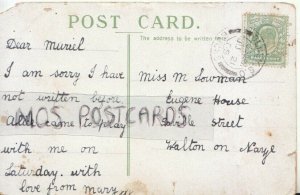 POST CARD.
THE ADDRESS TO BE WRITTEN
Dear Muriel
I am sorry I have
not written before
come to play
with me on
Saturday. with
love from mary
Miss M Lowman
Eugene House
Street
Walton on Naze
MOS POSTCARDS